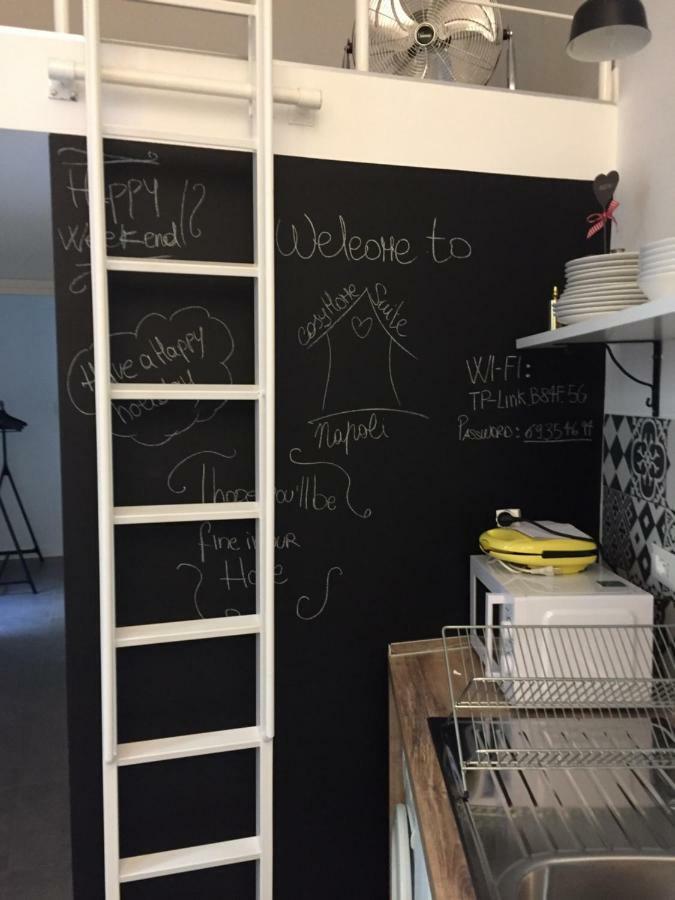 Happy
Weekend
Have a Happy
holiday
Welcome to
Cosy Home Suite
Napoli
WI-FI:
TP-Link_B84F56
Password: 69354694
I hope you'll be
fine in our
Home